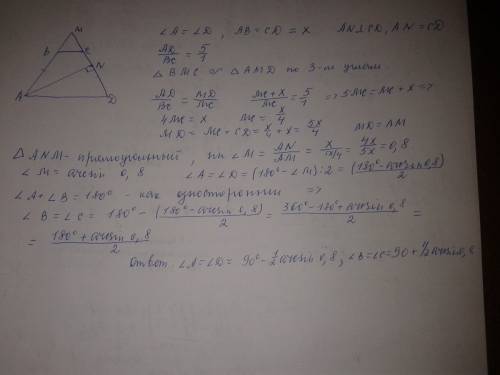 M
B C
N
A D
∠A = ∠D, AB = CD = x AN⊥CD, AN = CD
AD/BC = 5/1
△ BMC ∾ △ AMD по 3-м углам.
AD/BC = MD/MC MC + x/MC = 5/1 => 5MC = MC + x =>
4MC = x MC = x/4
MD = MC + CD = x/4 + x = 5x/4 MD = AM
△ ANM - прямоугольный, sin ∠M = AN/AM = x/(5x/4) = 4x/5x = 0,8
∠M = arcsin 0,8 ∠A = ∠D = (180° - ∠M) : 2 = (180° - arcsin 0,8)/2
∠A + ∠B = 180° - как односторонние =>
∠B = ∠C = 180° - (180° - arcsin 0,8)/2 = 360° - 180° + arcsin 0,8/2 =
= 180° + arcsin 0,8/2
Ответ: ∠A = ∠D = 90° - 1/2 arcsin 0,8; ∠B = ∠C = 90 + 1/2 arcsin 0,8